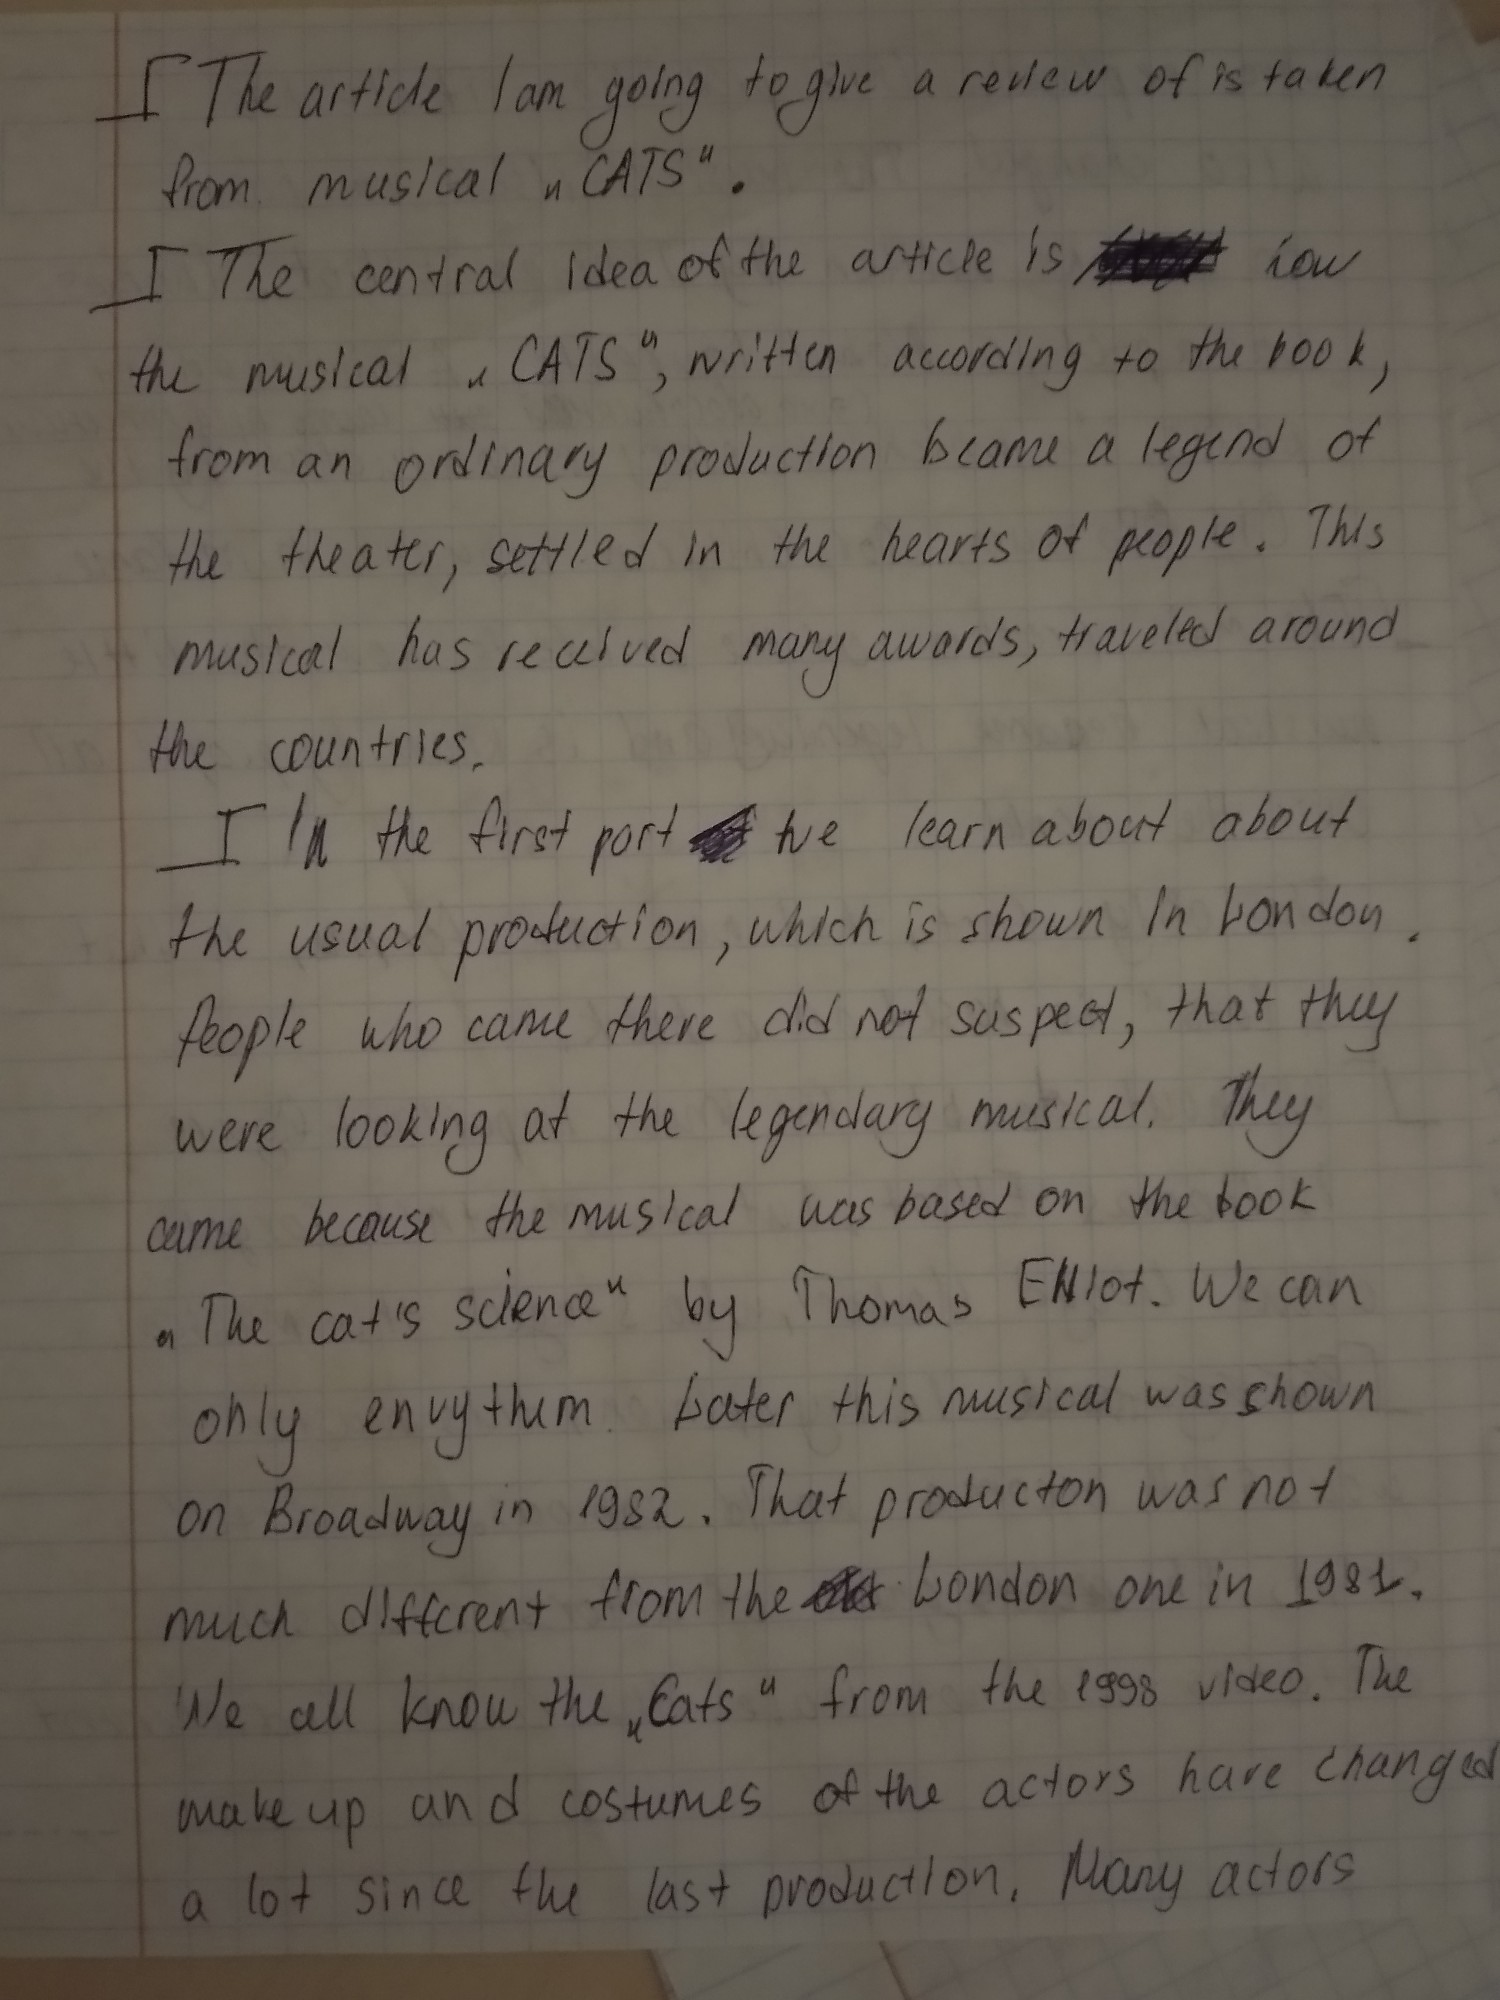 The article I am going to give a review of is taken
from musical „CATS“.
The central idea of the article is how
the musical „CATS“, written according to the book,
from an ordinary production became a legend of
the theater, settled in the hearts of people. This
musical has received many awards, traveled around
the countries.
In the first part we learn about about
the usual production, which is shown in London.
People who came there did not suspect, that they
were looking at the legendary musical. They
came because the musical was based on the book
„The cat's science“ by Thomas Elliot. We can
only envy them. Later this musical was shown
on Broadway in 1982. That producton was not
much different from the London one in 1981.
We all know the „Cats“ from the 1998 video. The
make up and costumes of the actors have changed
a lot since the last production. Many actors